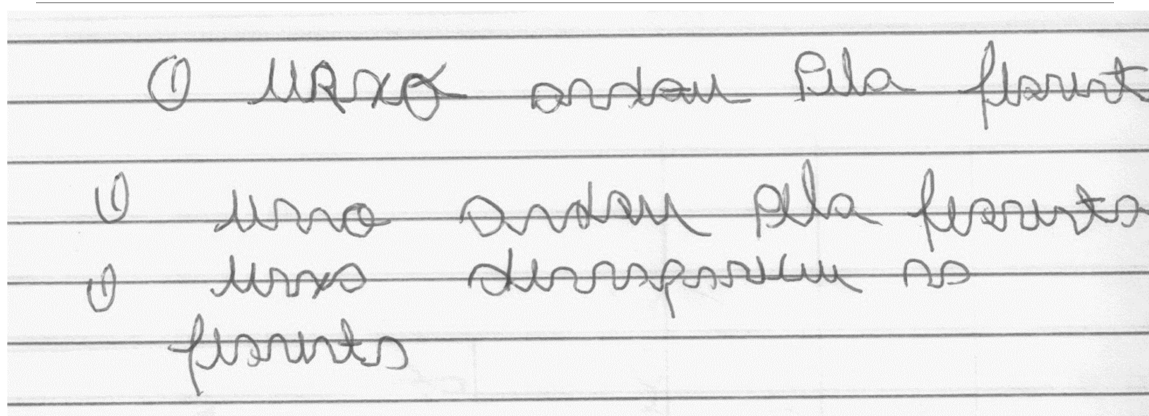 O urxo andou Pela florest
O urso andou pela floresta
O urxo desapareceu na
floresta